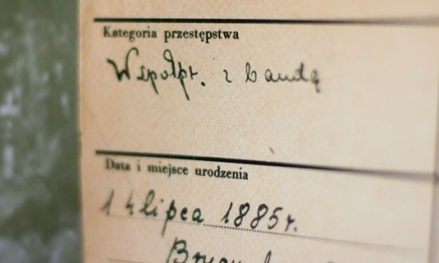 Kategoria przestępstwa
Współpr. z bandą
Data i miejsce urodzenia
14 lipca 1885 r.